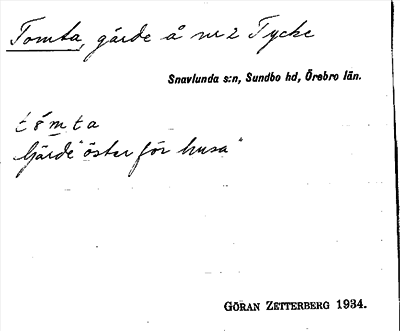 Tomta, gärde å nr 2 Tycke
Snavlunda s:n, Sundbo hd, Örebro län.
tómta
Gärde "öster för husa"
GÖRAN ZETTERBERG 1934.